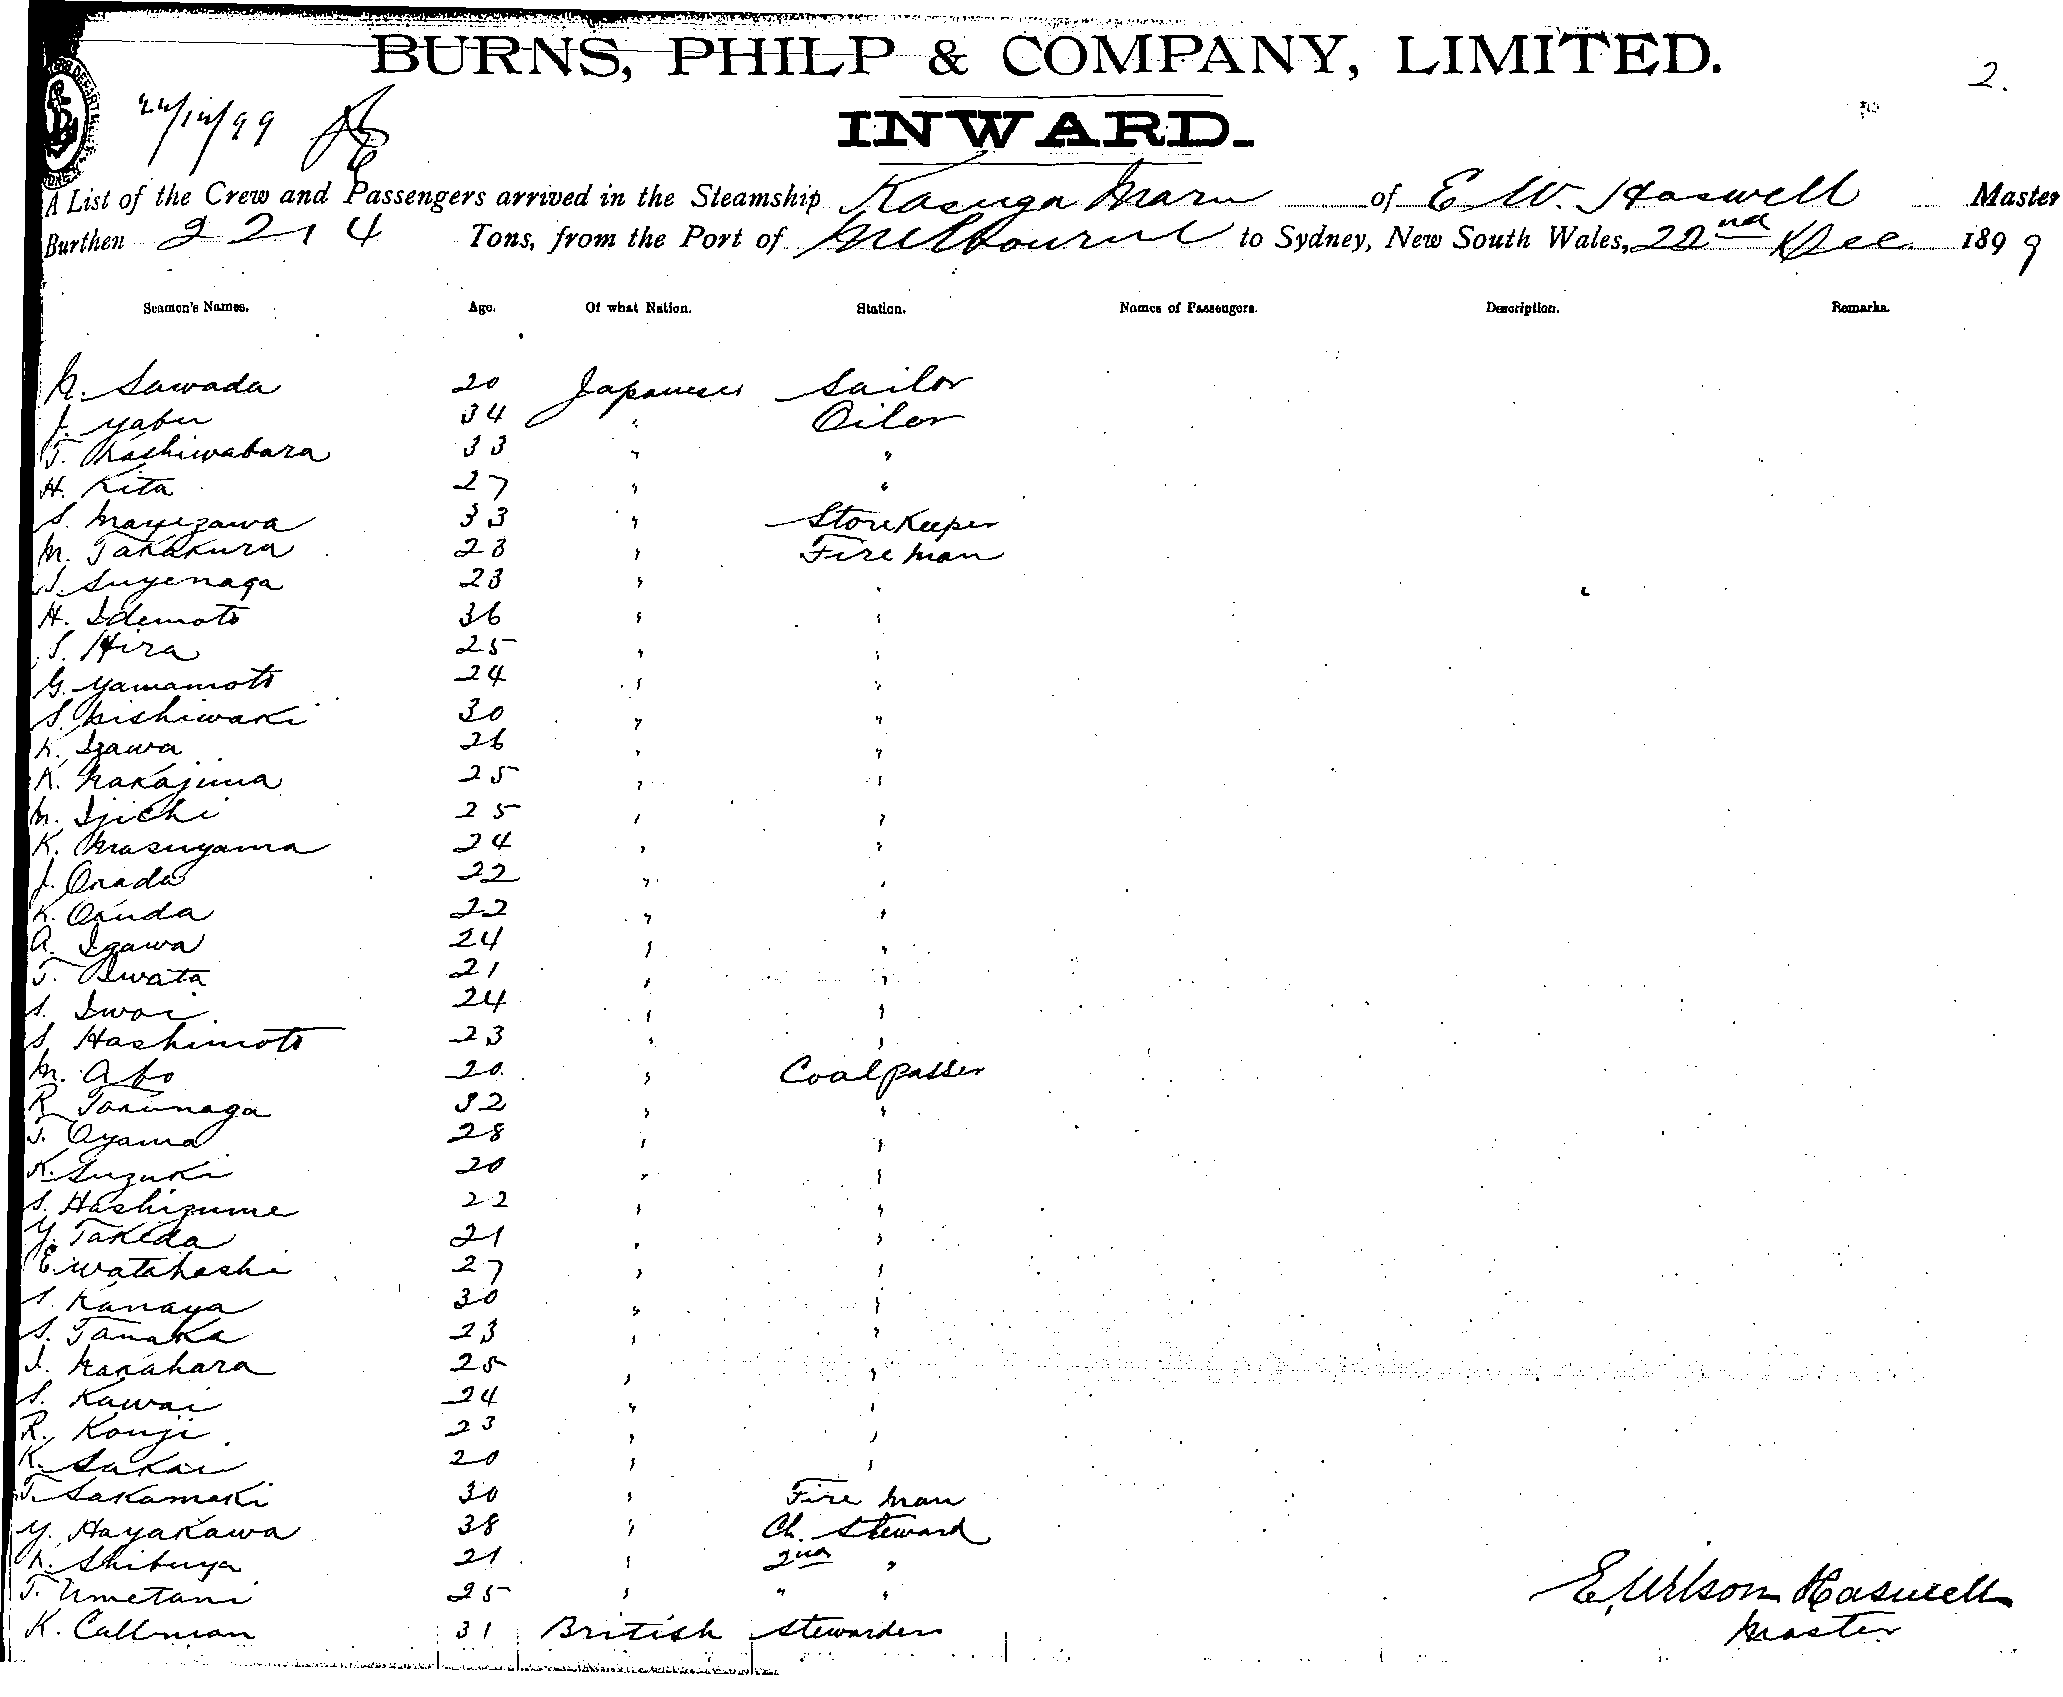 BURNS, PHILP & COMPANY, LIMITED.
2.
22/12/99
INWARD.
A List of the Crew and Passengers arrived in the Steamship Kasuga Maru of E. W. Haswell Master
Burthen 2214 Tons, from the Port of Melbourne to Sydney, New South Wales, 22nd Dec 1899
Seamen's Names. Age. Of what Nation. Station. Names of Passengers. Description. Remarks.
K. Sawada 20 Japanese Sailor
J. Yabu 34 " Oiler
T. Kashiwabara 33 " "
H. Kita 27 " "
S. Mayezawa 33 " Storekeeper
M. Takakura 23 " Fireman
S. Suyenaga 23 " "
H. Idemoto 36 " "
S. Hira 25 " "
G. Yamamoto 24 " "
S. Nishiwaki 30 " "
K. Izawa 26 " "
K. Nakajima 25 " "
M. Ijichi 25 " "
K. Masuyama 24 " "
J. Onada 22 " "
K. Okuda 22 " "
A. Igawa 24 " "
T. Iwata 21 " "
S. Iwai 24 " "
S. Hashimoto 23 " "
M. Abo 20 " Coalpasser
R. Tokunaga 32 " "
T. Oyama 28 " "
K. Suzuki 20 " "
S. Hashizume 22 " "
Y. Takeda 21 " "
E. Watahashi 27 " "
S. Kanaya 30 " "
S. Tanaka 23 " "
I. Nakahara 25 " "
S. Kawai 24 " "
R. Kouji 23 " "
K. Sakai 20 " "
T. Sakamaki 30 " Fireman
Y. Hayakawa 38 " Ch. Steward
K. Shibuya 21 " 2nd "
T. Umetani 25 " " "
K. Callman 31 British Stewardess
E. Wilson Haswell
Master